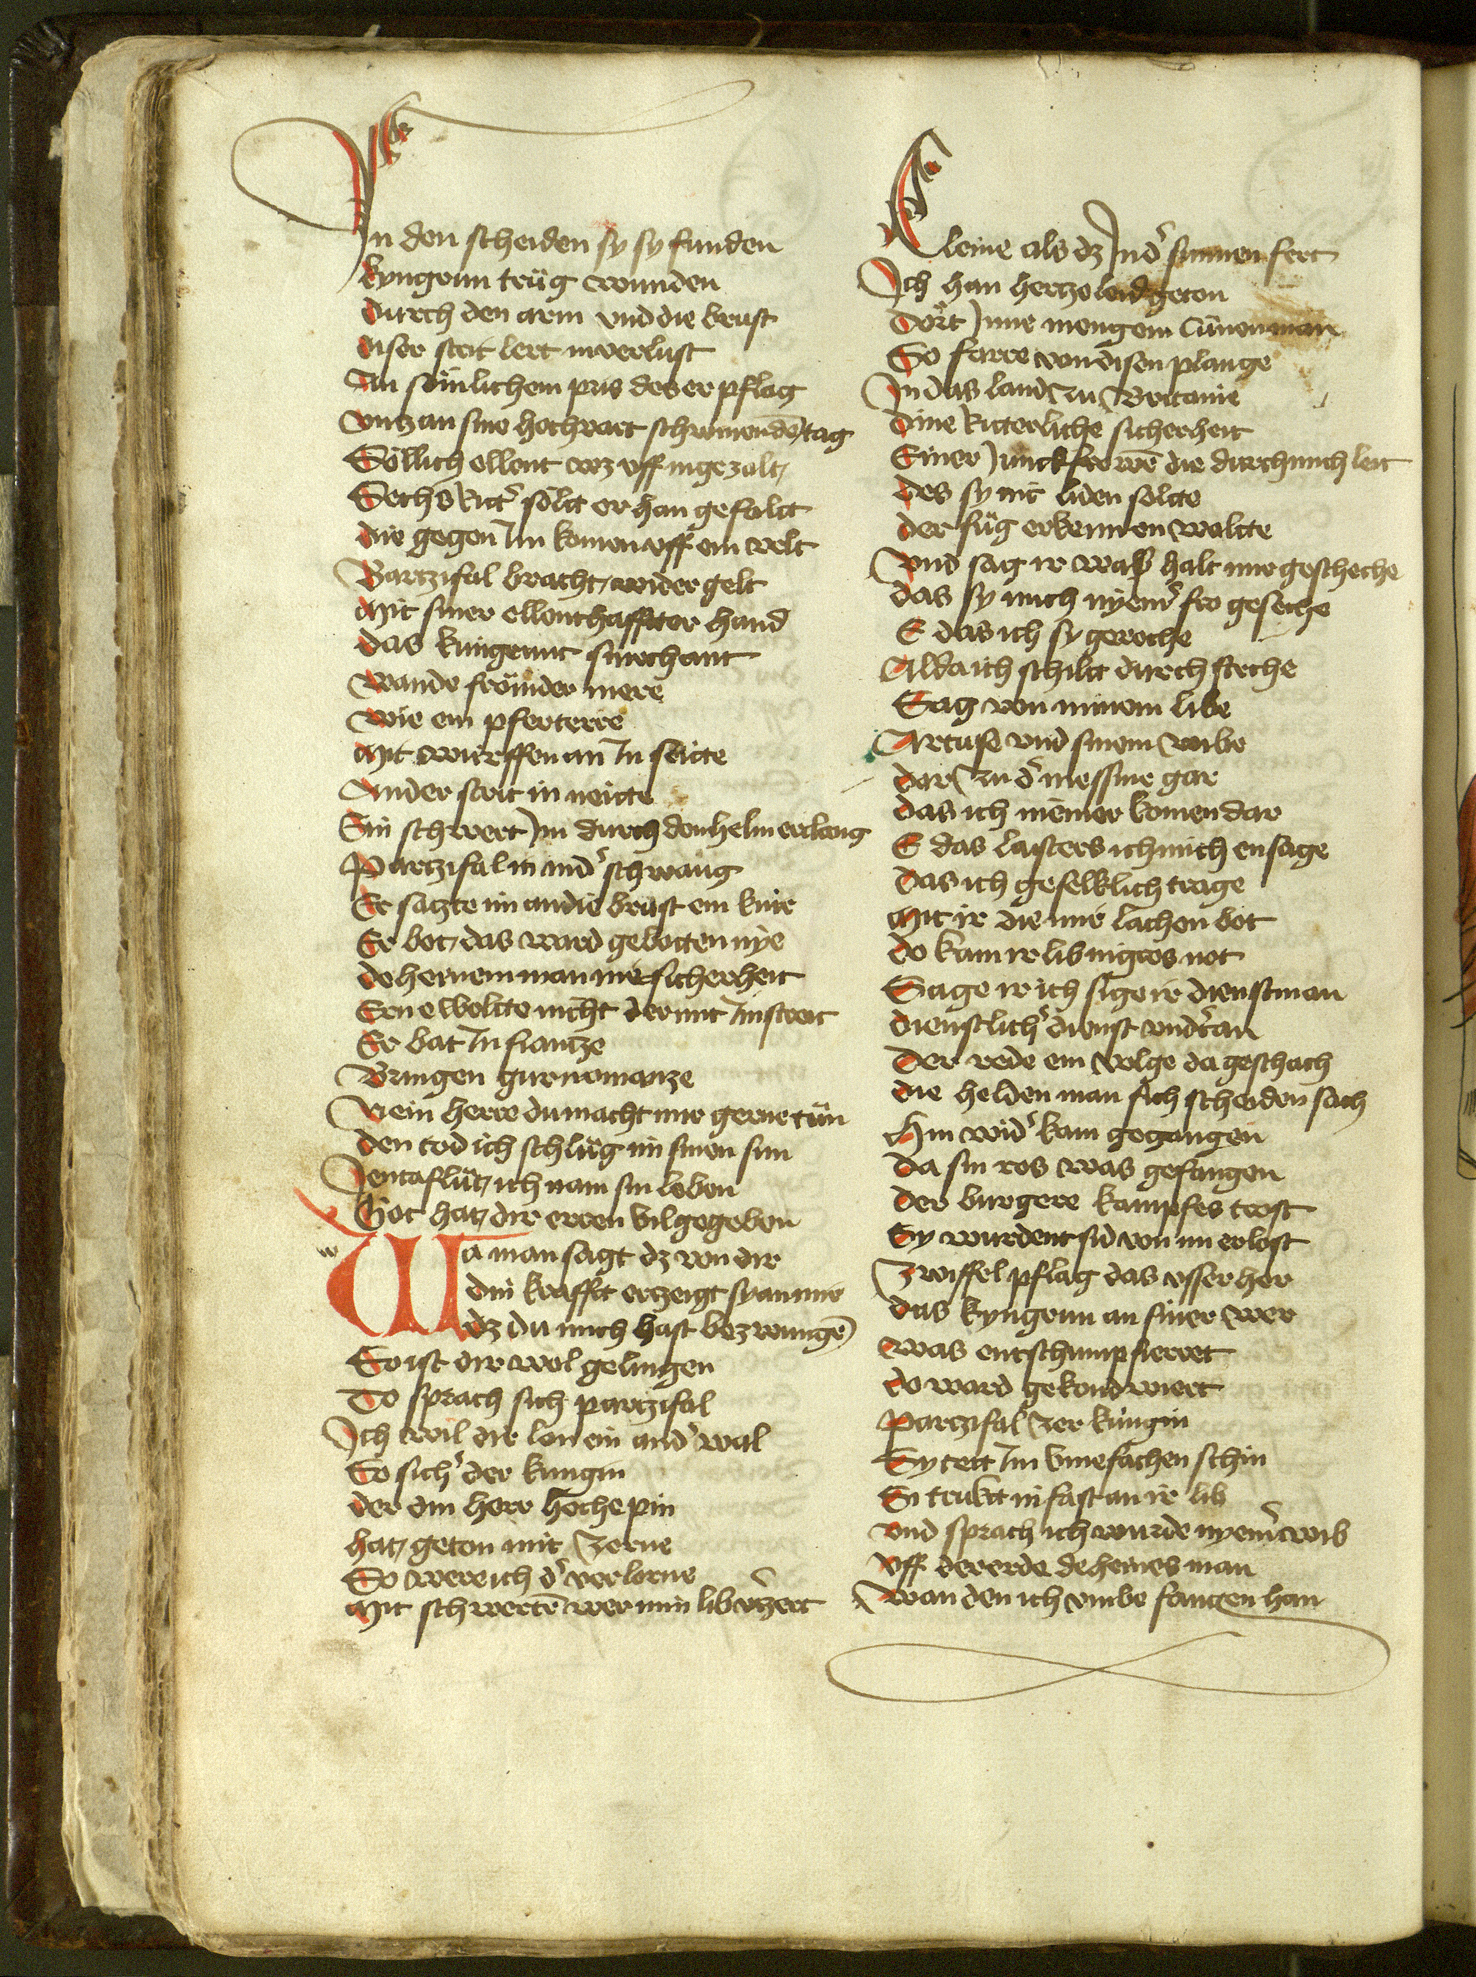 In den scheiden sy sy funden
kyngrun trůg wunden
durch den arm vnd die brust
diser strit lert in verlust
An sölichem pris des er pflag
vntz an sine hochvart schwinendē tag
Söllich ellent wz vff in gezalt
Sechs ritt' sölt er han gefalt
die gegen Im komen vff ein velt
Partzifal bracht wider gelt
Mit siner ellenthaffter hand
das kingrunt sinechant
Wande frömder mere
wie ein pferterre
Mit würffen an In seitte
Ander strit in neitte
Sin schwert Im durch den helm erclang
Partzifal in nid' schwang
Er satzte im an die brust ein knie
Er bot das ward gebotten nye
deheinem man me sicherheit
Ern ewolte nicht der mit Im streit
Er bat In fiantze
Bringen gurnomantze
Nein herre du macht mir gerne tůn
den tod ich schlůg im sinen sun
Jentaflůr ich nam sin leben
Got hat dir eren vil gegeben
w
Wa man sagt dz von dir
din krafft erzeigt sy an mir
dz du mich hast bezwungē
So ist dir wol gelungen
Do sprach sich partzifal
Ich wil dir lon ein and' wal
So sich' der kungin
der din herr hoche pin
hat geton mit zorne
So were ich d' verlorne
Mit schwertē wer min lib v'zert
Cleine als dz In d' sunnen fert
Ich han hertzeleid geton
dort Inne mengem cůnen man
So farre von disen plange
In das land zu Britanie
dine ritterliche sicherheit
Einer Junckfrowē die durch mich leit
des sy nit liden solte
der fůg erkennen wolte
vnd sag ir waß halt mir gescheche
das sy mich nyem' fro geseche
E das ich sy gereche
Alda ich schilt durch steche
Sag von minem libe
Artuse vnd sinem wibe
dar zu d' messine gar
das ich niemer komen dar
E das lasters ich mich ensage
das ich geselklich trage
Mit ir die mir lachen bot
do kam ir lib in gros not
Sage ir ich sige ir dienstman
dienstlich' dienst vnd'tan
Der rede ein volge da geschach
die helden man sich scheiden sach
Hin wid' kam gegangen
da sin ros was gefangen
der burgere kampfes trost
Sy wurdent sid von im erlost
Zwiffel pflag das vsser her
das kyngrun an siner wer
was entschumpfierret
do ward gekondwiert
Partzifal zer kungin
Sy tett Im vmefachen schin
Si trukt in fast an ir lib
vnd sprach ich wurde nyem' wib
vff dererde deheines man
Wan den ich vmbe fangen han